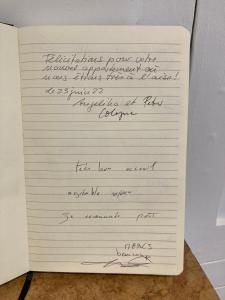 Félicitations pour votre
nouvel appartement où
nous étions très à l'aise!
le 23 juin 22
Angelika et Peter
Cologne
Très bon accueil
agréable séjour
Je recommande
MERCI
beaucoup